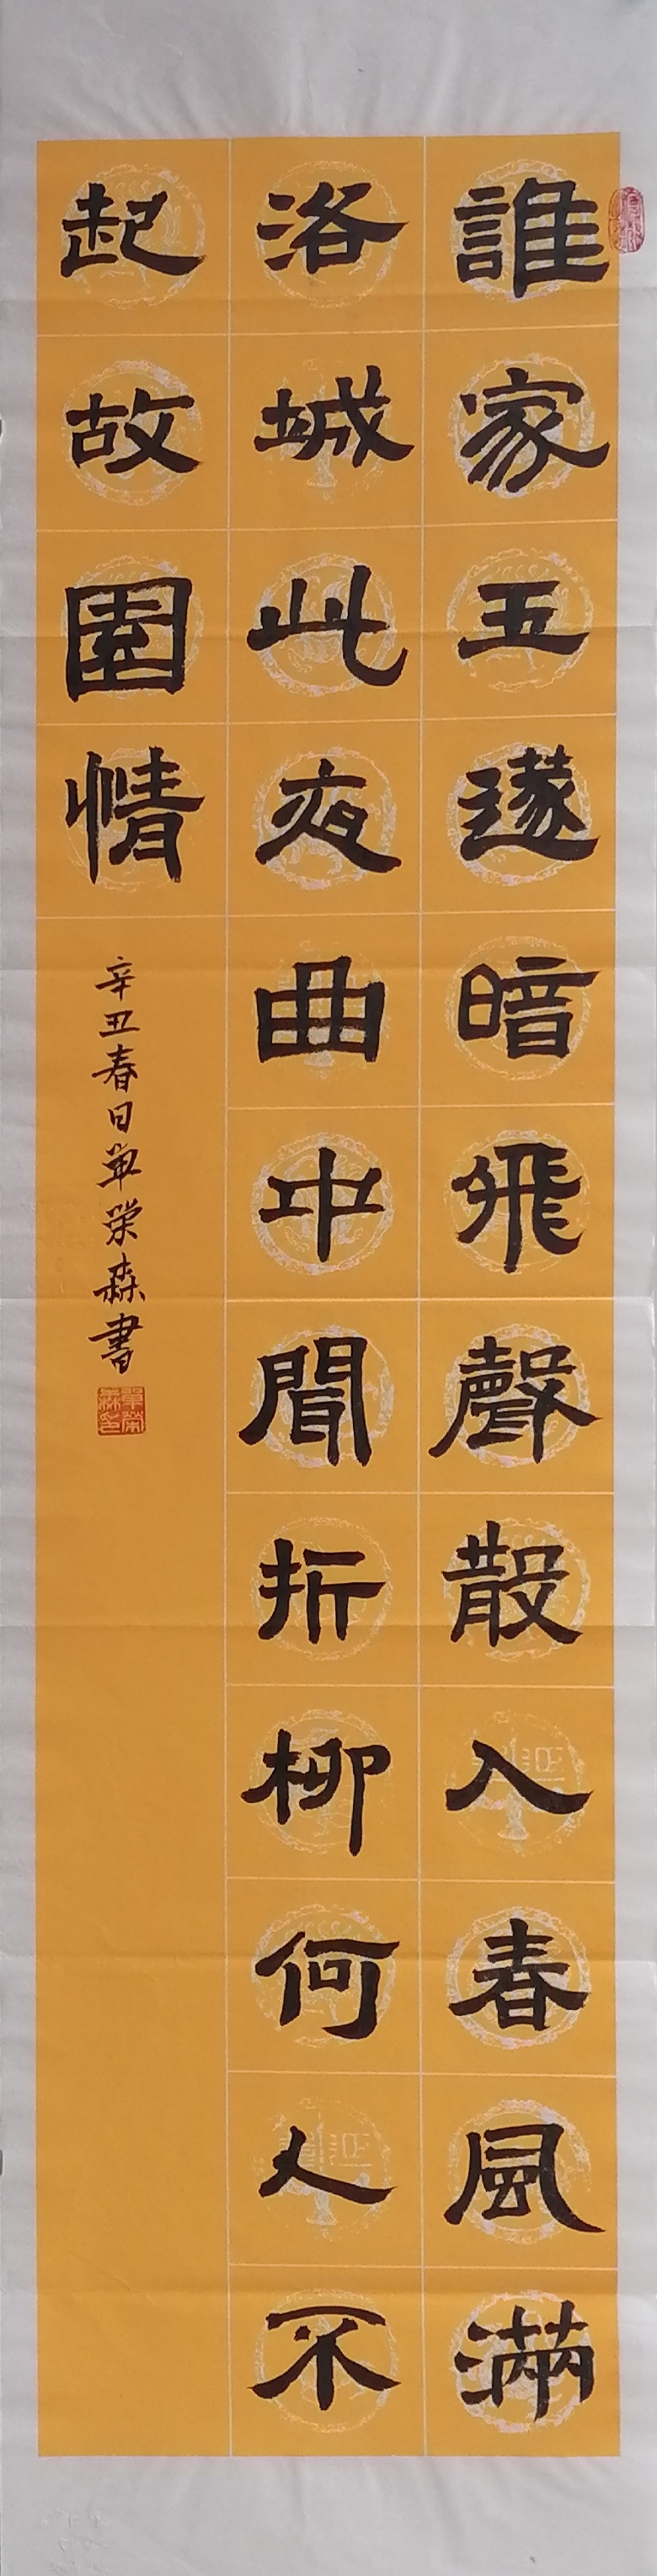 誰家五篴暗飛聲散入春風滿
洛城此夜曲中聞折柳何人不
起故園情
辛丑春日单榮森書
單榮森印